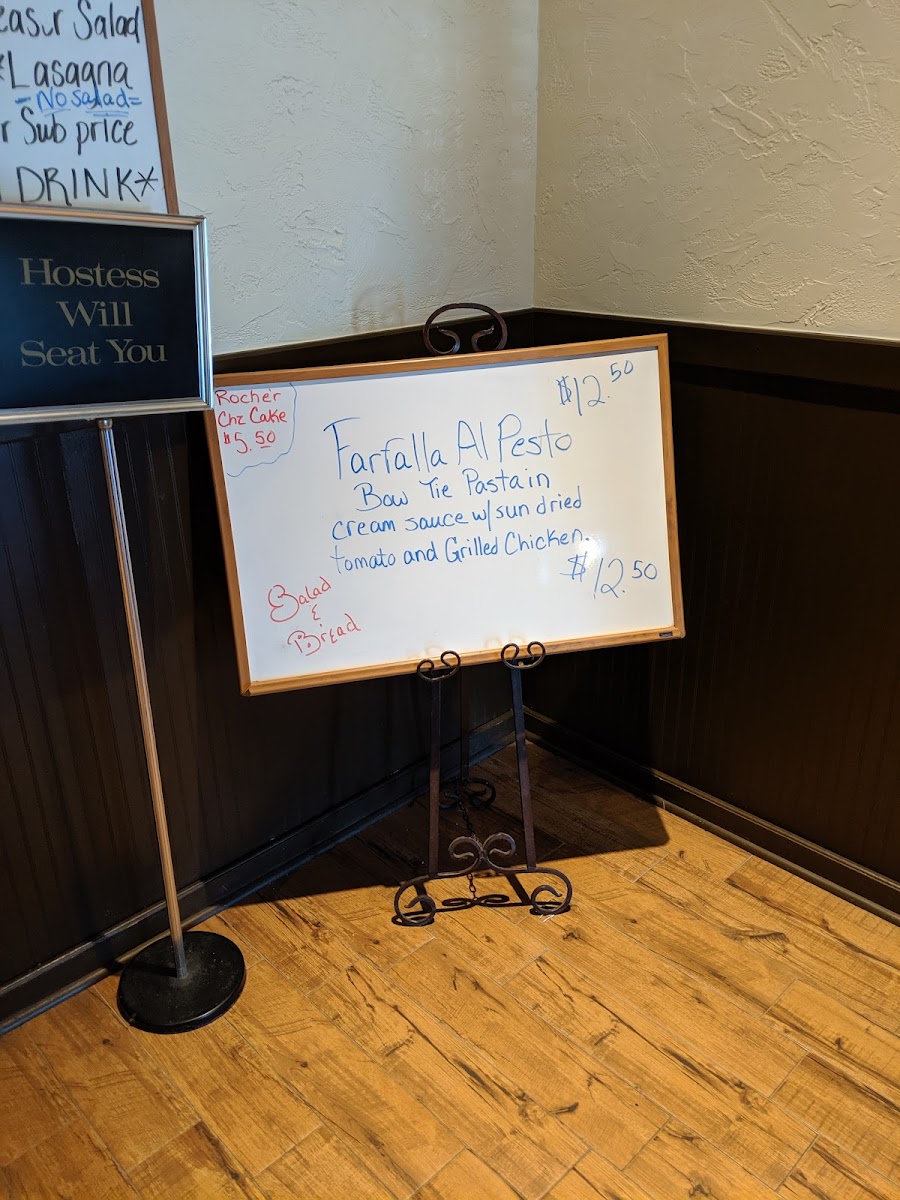 Salad
*Lasagna
- No salad =
Sub price
DRINK*
Hostess
Will
Seat You
Rocher
Chz Cake
$5.50
$12.50
Farfalla Al Pesto
Bow Tie Pasta in
cream sauce w/ sun dried
tomato and Grilled Chicken.
$12.50
Salad
&
Bread